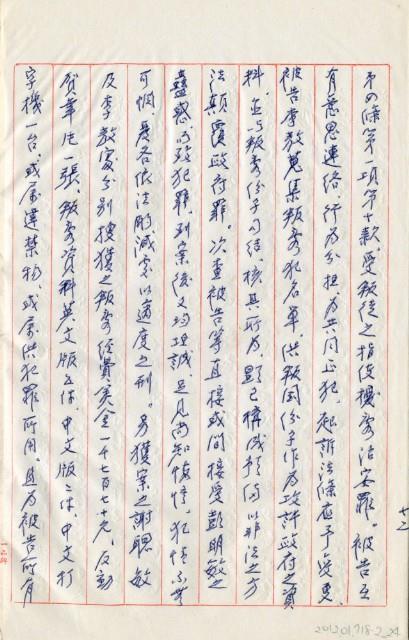 第四條第一項第十款、受叛徒之指使擾亂治安罪。被告三
有意思連絡、行為分担、為共同正犯、起訴法條應予變更。
被告李敖蒐集叛亂犯名單、供叛國份子作為攻訐政府之資
料、並與叛亂份子勾結、核其所為、顯已構成預備以非法之方
法顛覆政府罪。次查被告等直接或間接受彭明敏之
蠱惑以致犯罪、到案後又均坦誠、足見尚知悔悟、犯情不無
可憫、爰各依法酌減、處以適度之刑。另獲案之謝聰敏
及李敖處分別搜獲之叛亂經費、美金一千七百七十元、反動
賀年片一張、叛亂資料英文版三件、中文版二件、中文打
字機一台、或屬違禁物、或屬供犯罪所用、且為被告所有
廿二
2012.01.718-2_24